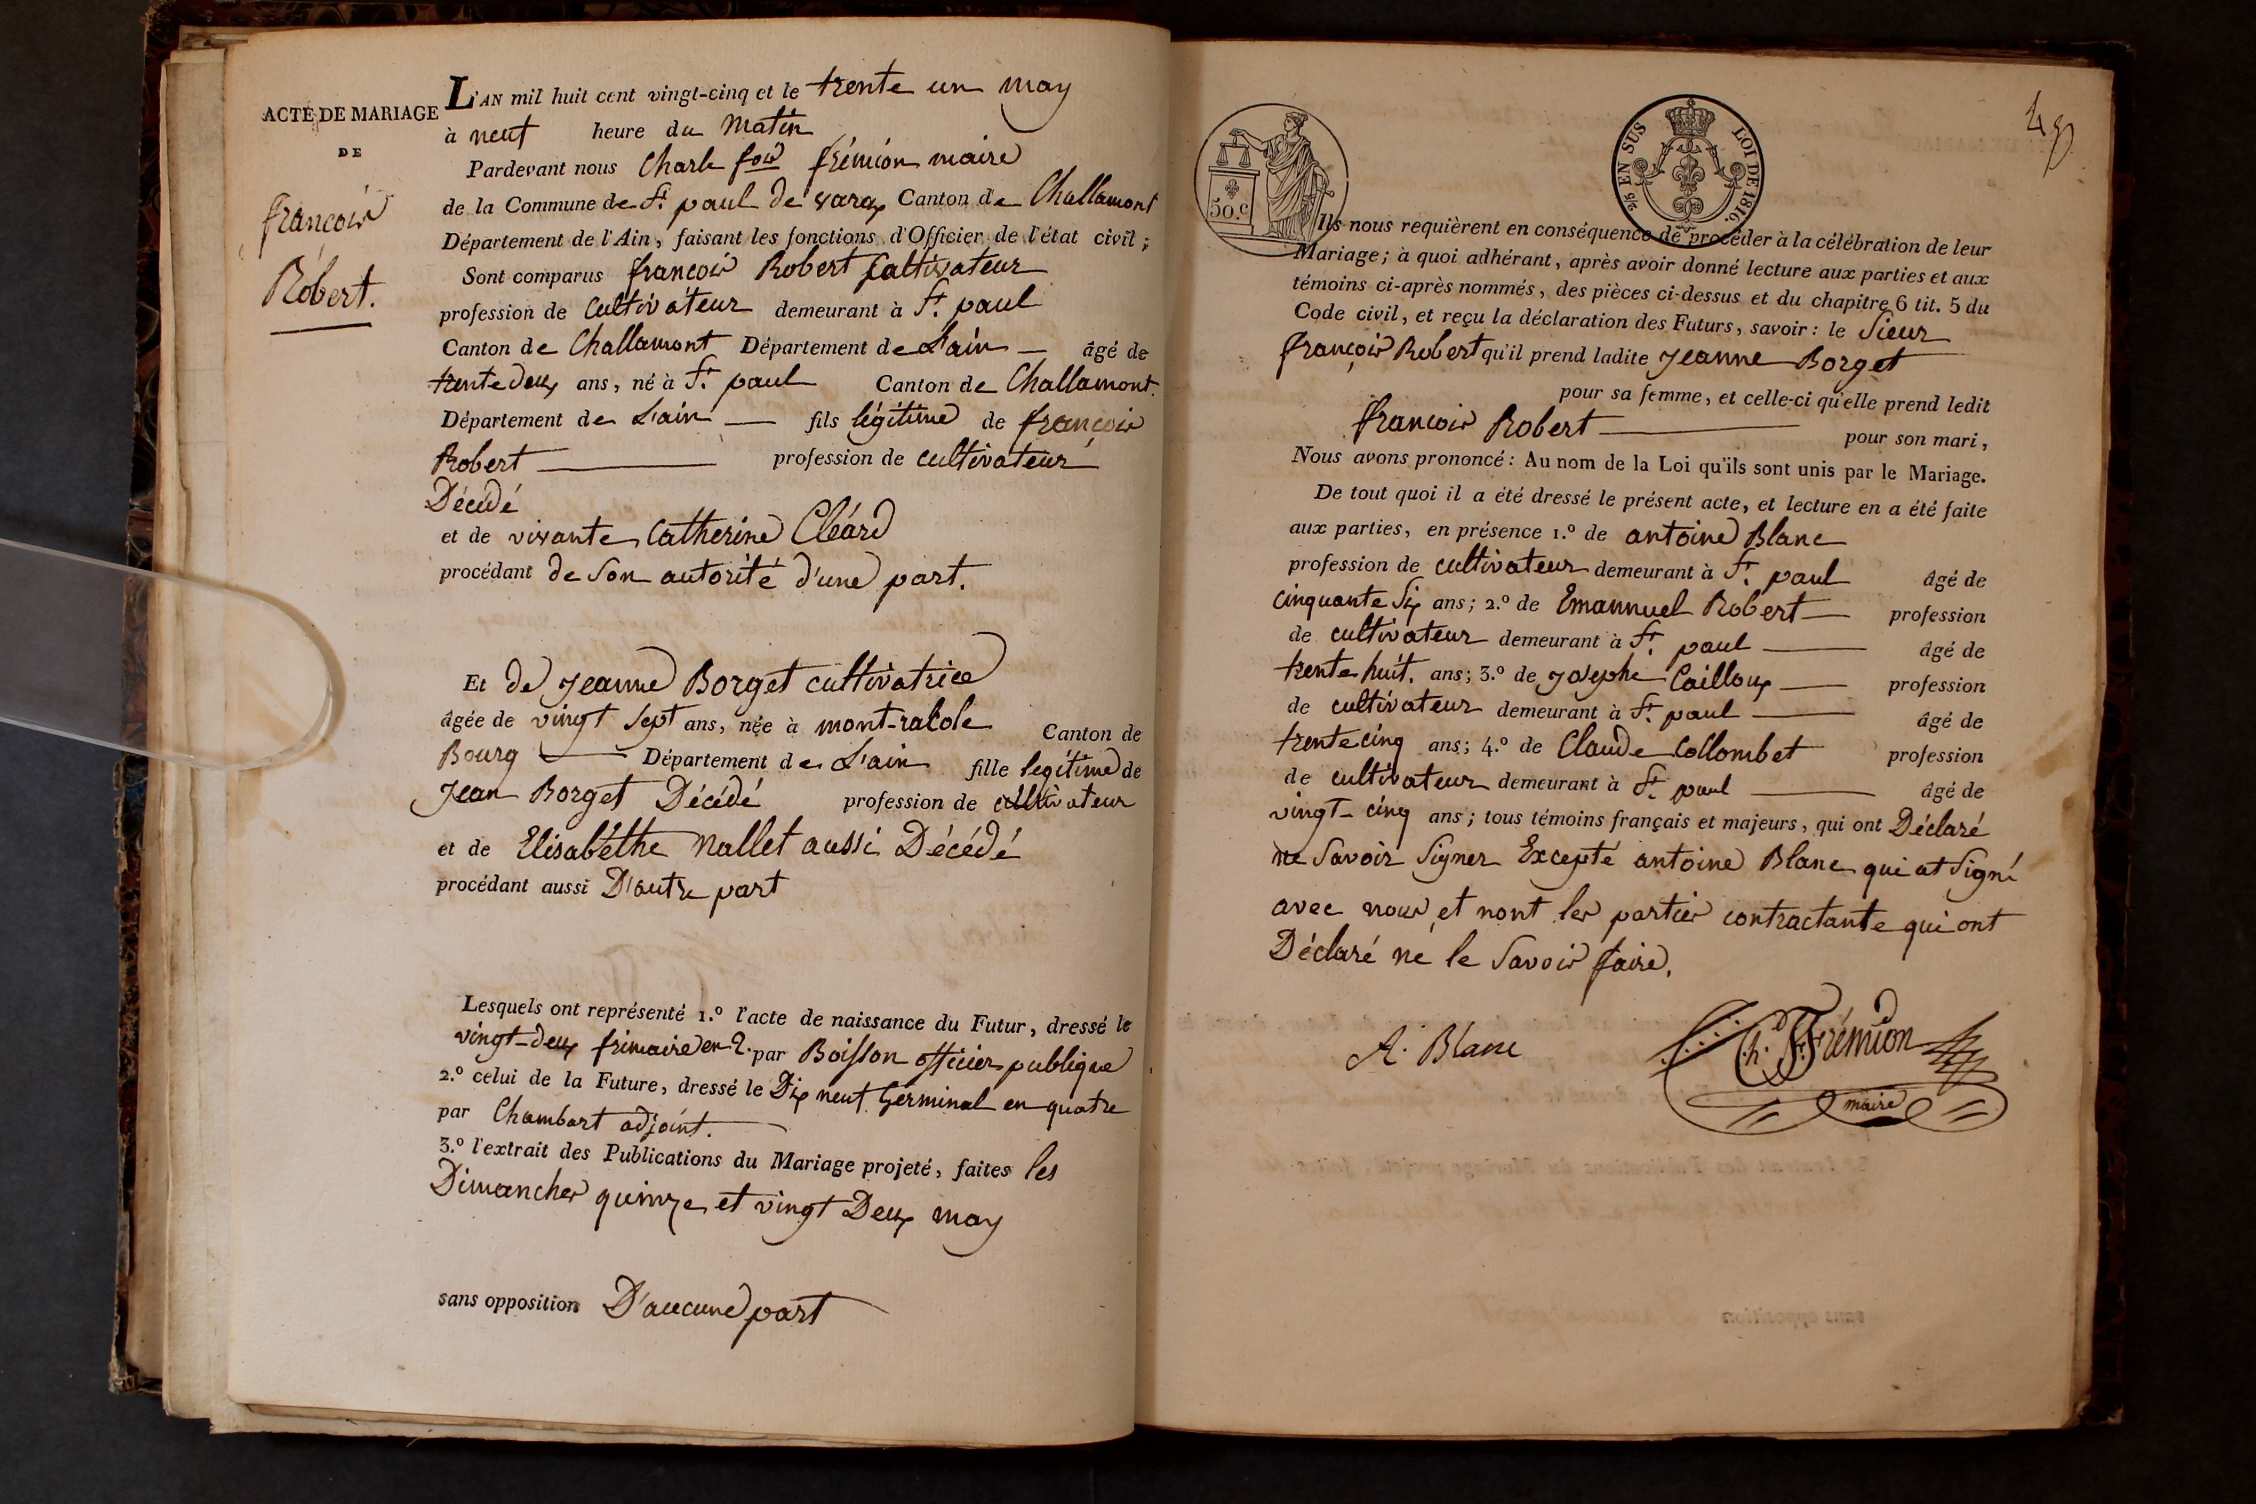 ACTE DE MARIAGE
DE
françois
Robert.
L'AN mil huit cent vingt-cinq et le trente un may
à neuf heure du matin
Pardevant nous Charle fois frémion maire
de la Commune de St. paul de varax Canton de Challamont
Département de l'Ain, faisant les fonctions d'Officier de l'état civil ;
Sont comparus françois Robert Cultivateur
profession de cultivateur demeurant à St. paul
Canton de Challamont Département de L'ain âgé de
trente deux ans, né à St. paul Canton de Challamont.
Département de L'ain fils légitime de françois
Robert profession de cultivateur
Décédé
et de vivante Catherine Cléard
procédant de son autorité d'une part.
Et de Jeanne Borget cultivatrice
âgée de vingt sept ans, née à mont-racole Canton de
Bourg Département de L'ain fille legitime de
Jean Borget Décédé profession de cultivateur
et de Elisabéthe Nallet aussi Décédé
procédant aussi D'autre part
Lesquels ont représenté 1.º l'acte de naissance du Futur, dressé le
vingt-deux frimaire en 2. par Boisson officier publique
2.º celui de la Future, dressé le Dix neuf Germinal en quatre
par Chambart adjoint.
3.º l'extrait des Publications du Mariage projeté, faites les
Dimanches quinze et vingt Deux may
sans opposition D'aucune part
50.c
2/5 EN SUS LOI DE 1816.
48
Ils nous requièrent en conséquence de procéder à la célébration de leur
Mariage ; à quoi adhérant, après avoir donné lecture aux parties et aux
témoins ci-après nommés, des pièces ci-dessus et du chapitre 6 tit. 5 du
Code civil, et reçu la déclaration des Futurs, savoir : le Sieur
françois Robert qu'il prend ladite Jeanne Borget
pour sa femme, et celle-ci qu'elle prend ledit
françois Robert pour son mari,
Nous avons prononcé : Au nom de la Loi qu'ils sont unis par le Mariage.
De tout quoi il a été dressé le présent acte, et lecture en a été faite
aux parties, en présence 1.º de antoine Blanc
profession de cultivateur demeurant à St. paul âgé de
cinquante six ans ; 2.º de Emannuel Robert profession
de cultivateur demeurant à St. paul âgé de
trente huit. ans ; 3.º de Josephe Cailloux profession
de cultivateur demeurant à St. paul âgé de
trente cinq ans ; 4.º de Claude Collombet profession
de cultivateur demeurant à St. paul âgé de
vingt-cinq ans ; tous témoins français et majeurs, qui ont Déclaré
ne savoir signer Excepté antoine Blanc qui at signé
avec nous et nont les parties contractante qui ont
Déclaré ne le savoir faire.
A. Blanc
Ch. F. Frémion
maire